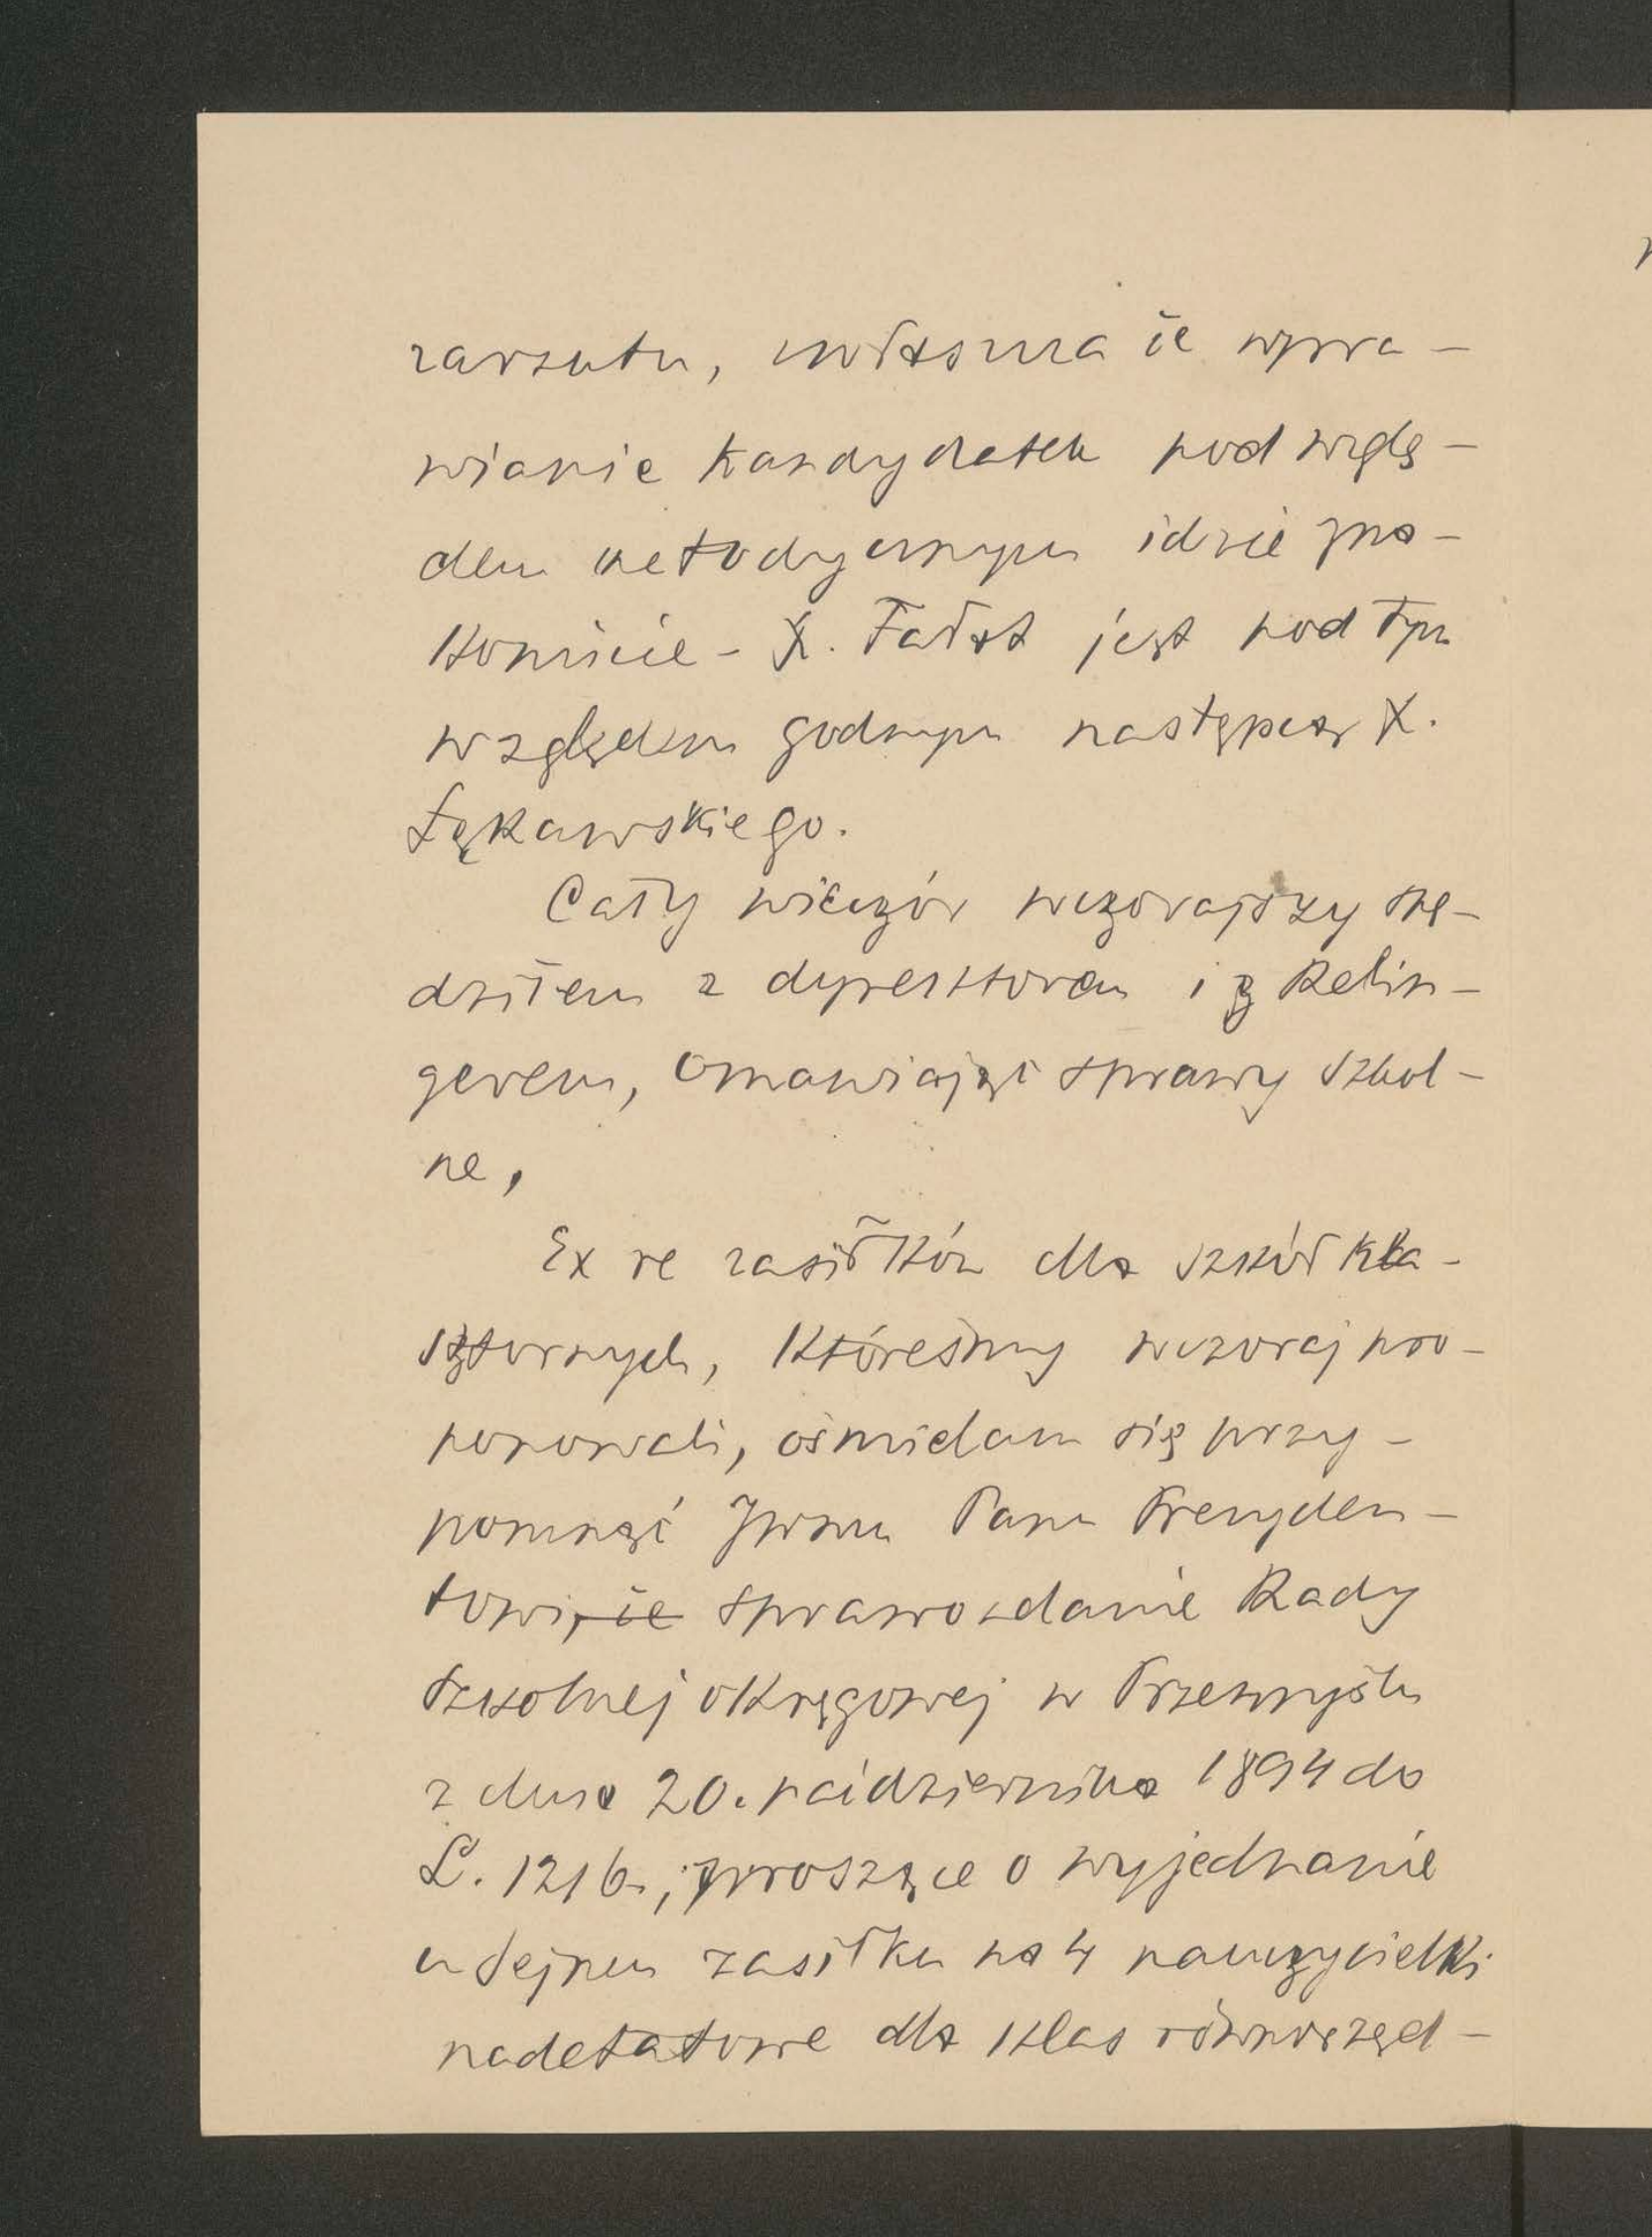 zarzutu, zwłaszcza że wpra-
wianie kandydatek pod wzglę-
dem metodycznym idzie zna-
komicie - X. Fałat jest pod tym
względem godnym następcą X.
Łękawskiego.
Cały wieczór wczorajszy spę-
dziłem z dyrektorem i z Relin-
gerem, omawiając sprawy szkol-
ne,
Ex re zasiłków dla szkół kla-
sztornych, któreśmy wczoraj pro-
ponowali, ośmielam się przy-
pomnąć JWmu Panu Prezyden-
towi, że sprawozdanie Rady
szkolnej okręgowej w Przemyślu
z dnia 20. października 1894 do
L. 1216, proszące o wyjednanie
u Sejmu zasiłku na 4 nauczycielki
nadetatowe dla klas równorzęd-